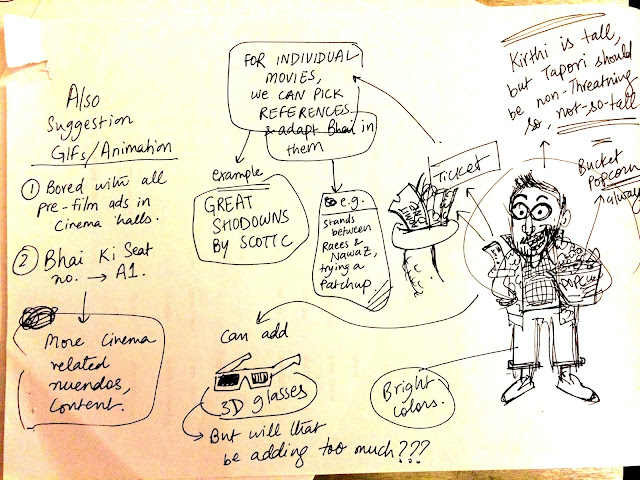 Also
Suggestion
GIFs/Animation
① Bored with all
pre-film ads in
Cinema halls.
② Bhai Ki Seat
no. → A1.
More cinema
related
nuendos,
Content.
FOR INDIVIDUAL
MOVIES,
WE CAN PICK
REFERENCES
& adapt Bhai in
them
example
GREAT
SHODOWNS
BY SCOTT C
e.g.
Stands
between
Raees &
Nawaz,
trying a
Patchup.
TICKET
Kirthi is tall,
but Tapori should
be non-Threatning
so, not-so-tall
Bucket
Popcorn
always
POPCO
Can add
3D glasses
But will that
be adding too much???
Bright
colors.